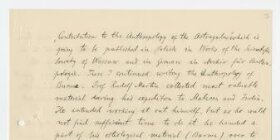 Contribution to the Anthropology of the Astragalus (which is
going to be published in polish in Works of the Scientific
Society of Warsaw and in german in Archiv für Anthro-
pologie. Then I continued writing the Anthropology of
Burma. Prof Rudolf Martin collected most valuable
material during his expedition to Malacca and India.
He intended working it out himself, but as he could
not find sufficient time to do it he handed a
part of his osteological material (Burma) over to